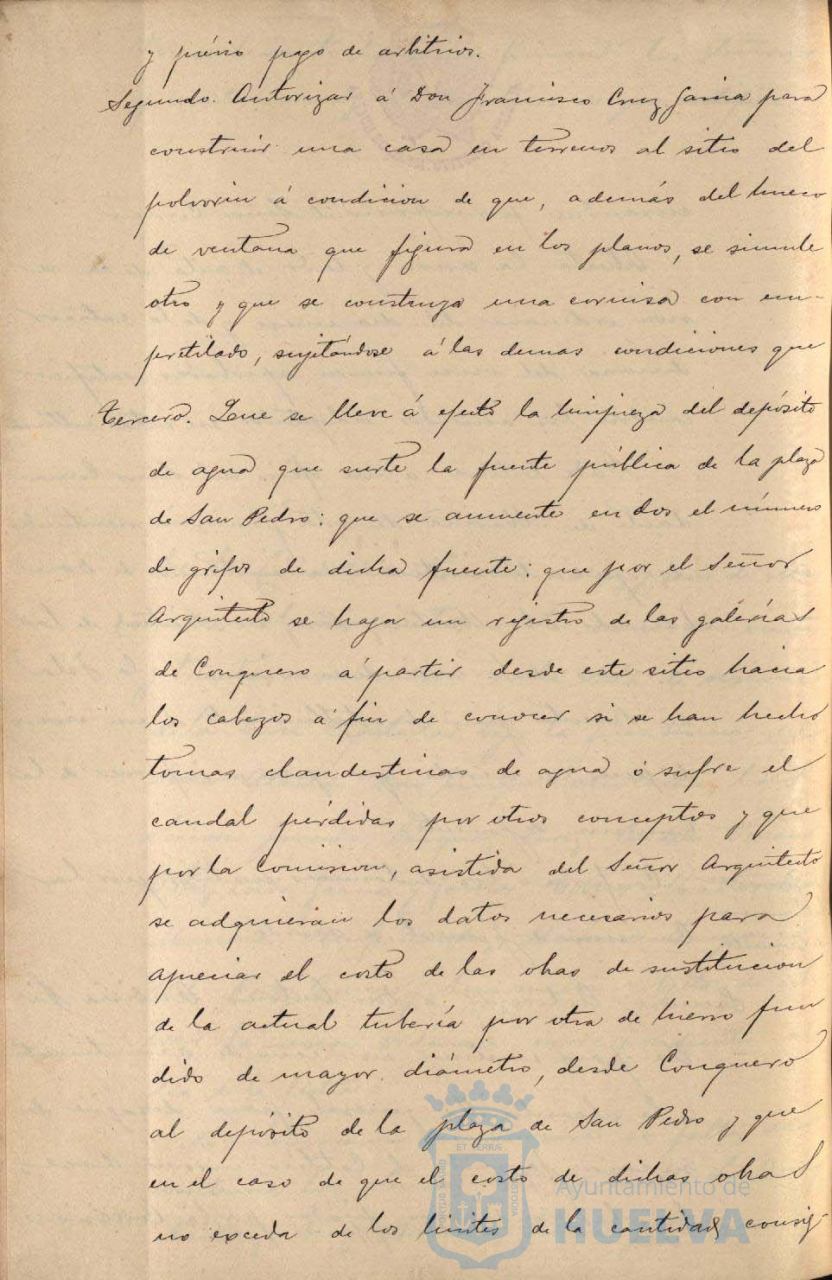 y prévio pago de arbitrios.
Segundo. Autorizar á Don Francisco Cruz Garcia para
construir una casa en terrenos al sitio del
polvorin á condicion de que, además del hueco
de ventana que figura en los planos, se simule
otro y que se construya una cornisa con em-
pretilado, sujetándose á las demas condiciones que
Tercero. Que se lleve á efecto la limpieza del depósito
de agua que surte la fuente pública de la plaza
de San Pedro: que se aumente en dos el número
de grifos de dicha fuente: que por el Señor
Arquitecto se haga un registro de las galerías
de Conquero á partir desde este sitio hacia
los cabezos á fin de conocer si se han hecho
tomas clandestinas de agua ó sufre el
caudal pérdidas por otros conceptos y que
por la Comision, asistida del Señor Arquitecto
se adquieran los datos necesarios para
apreciar el costo de las obras de sustitucion
de la actual tubería por otra de hierro fun
dido de mayor diámetro, desde Conquero
al depósito de la plaza de San Pedro y que
en el caso de que el costo de dichas obras
no exceda de los límites de la cantidad consig-
Ayuntamiento de
HUELVA